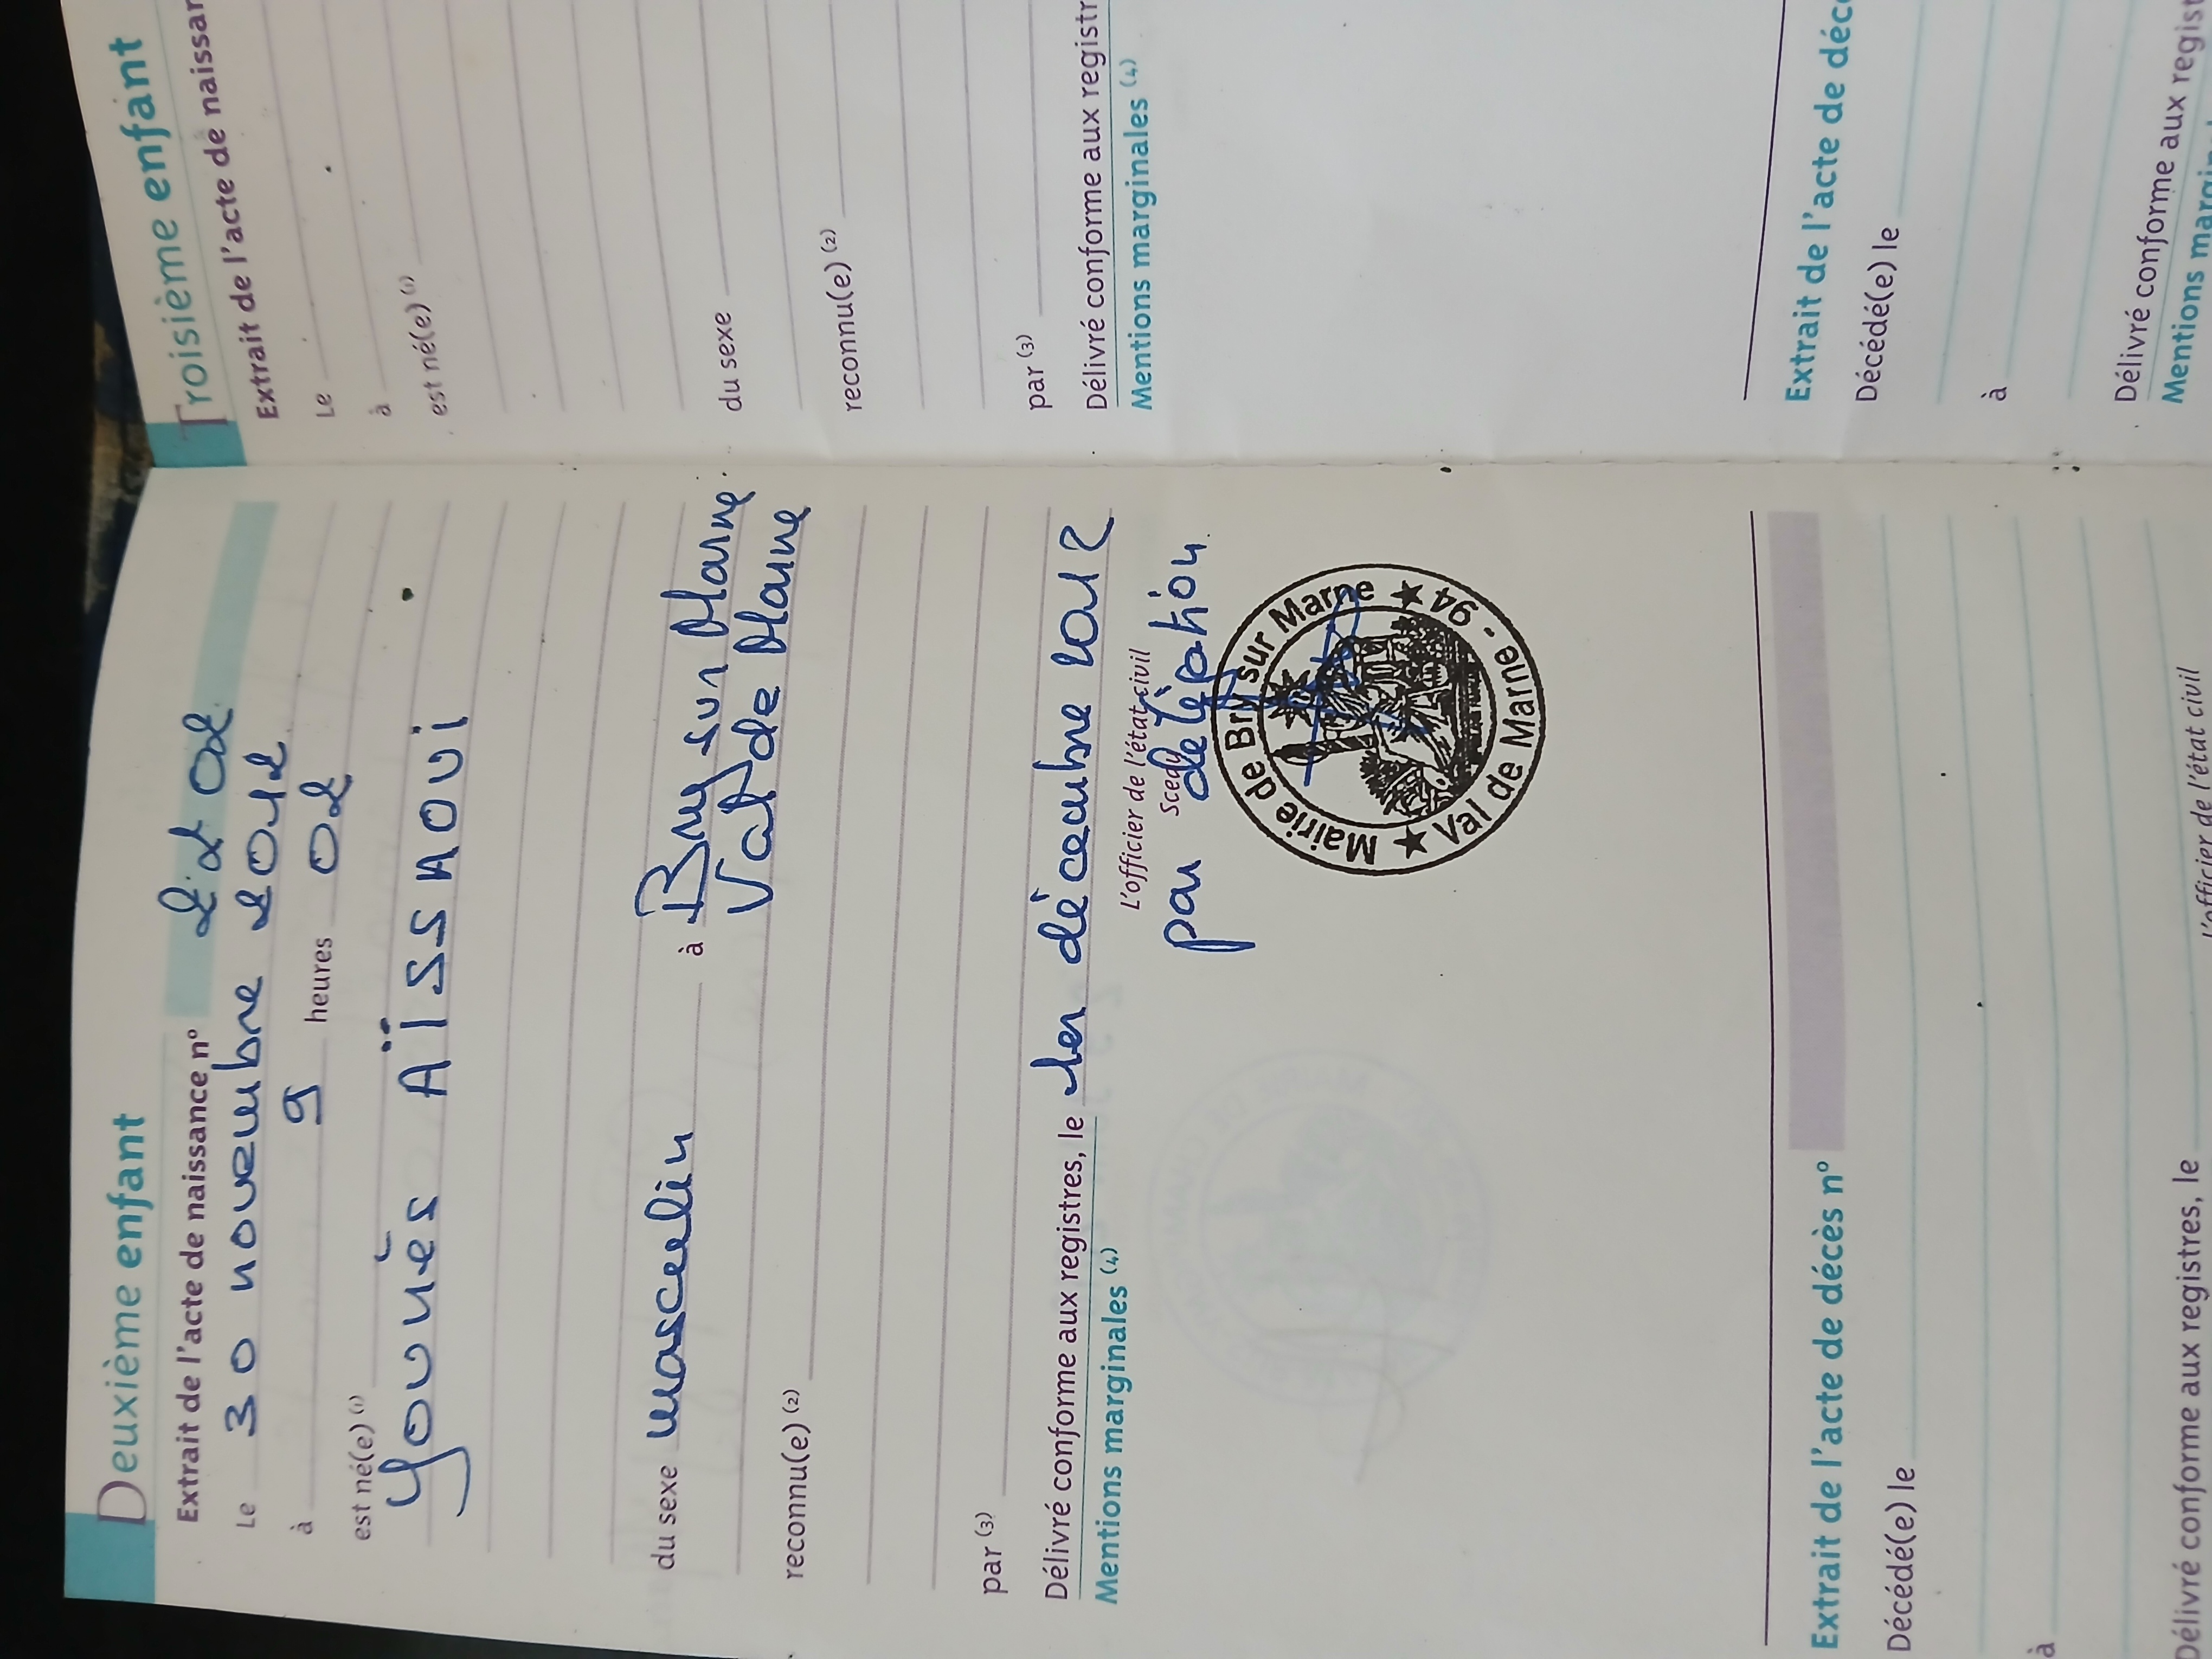 Deuxième enfant
Extrait de l'acte de naissance n° 2202
Le 30 novembre 2012
à 9 heures 02
est né(e) (1)
Younès AÏSSAOUI
du sexe masculin à Bry-sur-Marne
Val de Marne
reconnu(e) (2)
par (3)
Délivré conforme aux registres, le 1er décembre 2012
Mentions marginales (4)
L'officier de l'état civil
Sceau
par délégation
Mairie de Bry sur Marne ★ 94 - Val de Marne ★
Extrait de l'acte de décès n°
Décédé(e) le
à
Délivré conforme aux registres, le
L'officier de l'état civil
Troisième enfant
Extrait de l'acte de naissan
Le
à
est né(e) (1)
du sexe
reconnu(e) (2)
par (3)
Délivré conforme aux registr
Mentions marginales (4)
Extrait de l'acte de déc
Décédé(e) le
à
Délivré conforme aux regist
Mentions margin